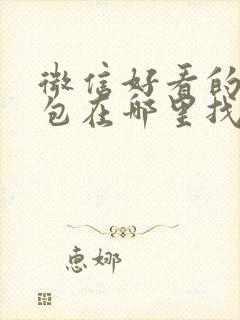 微信好看的
包在哪里找
惠娜